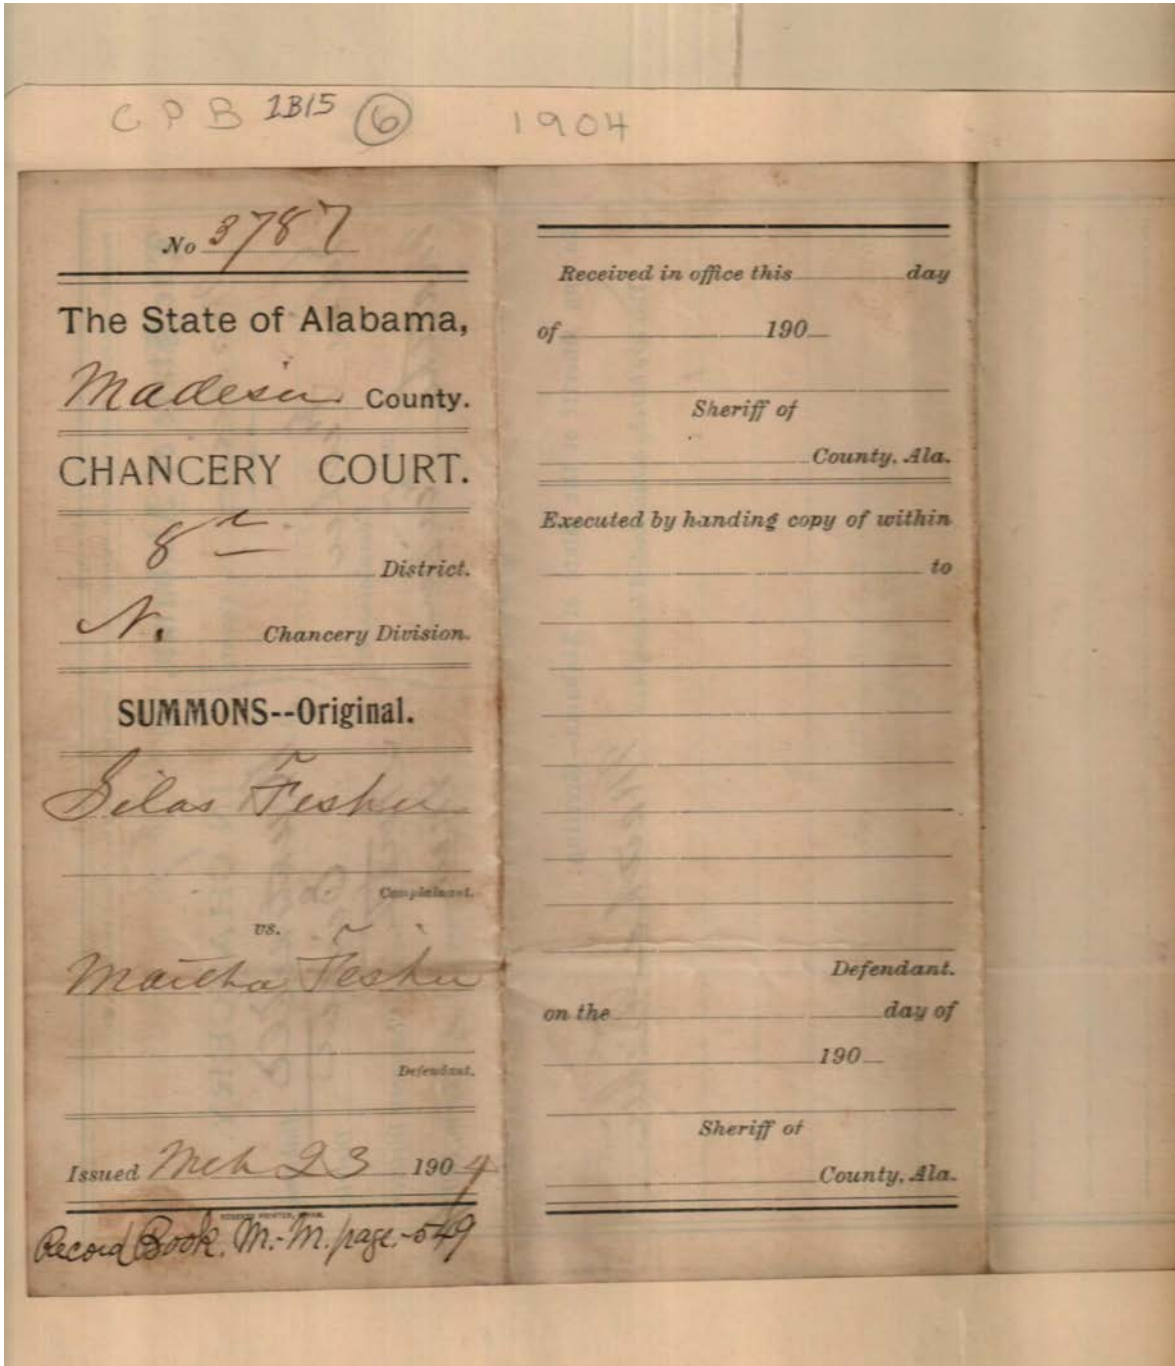 C P B 1B15 6 1904
No 3787
The State of Alabama,
Madison County.
CHANCERY COURT.
8th District.
N. Chancery Division.
SUMMONS--Original.
Silas Fisher
Complainant.
vs.
Martha Fisher
Defendant.
Issued Mch 23 1904
Record Book. M.-M. page.-549
Received in office this day
of 190
Sheriff of
County, Ala.
Executed by handing copy of within
to
Defendant.
on the day of
190
Sheriff of
County, Ala.